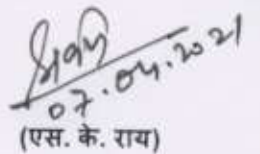 07.04.2021
(एस. के. राय)